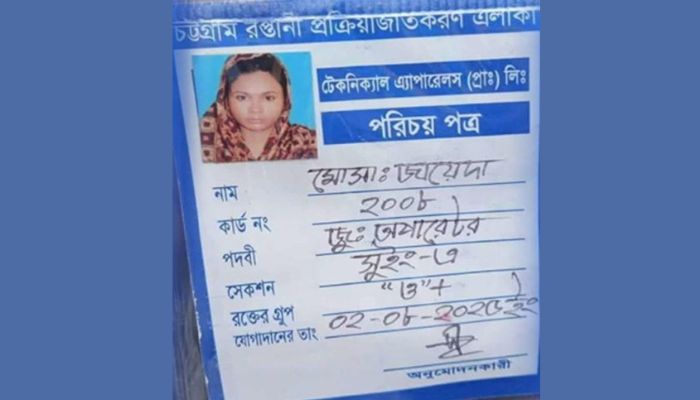 চট্টগ্রাম রপ্তানী প্রক্রিয়াজাতকরণ এলাকা
টেকনিক্যাল এ্যাপারেলস (প্রাঃ) লিঃ
পরিচয় পত্র
নাম মোসাঃ জায়েদা
কার্ড নং ২০০৮
পদবী জুঃ অপারেটর
সেকশন সুইং-এ
রক্তের গ্রুপ "ও"+
যোগাদানের তাং ০২-০৮-২০২৩ ইং
অনুমোদনকারী